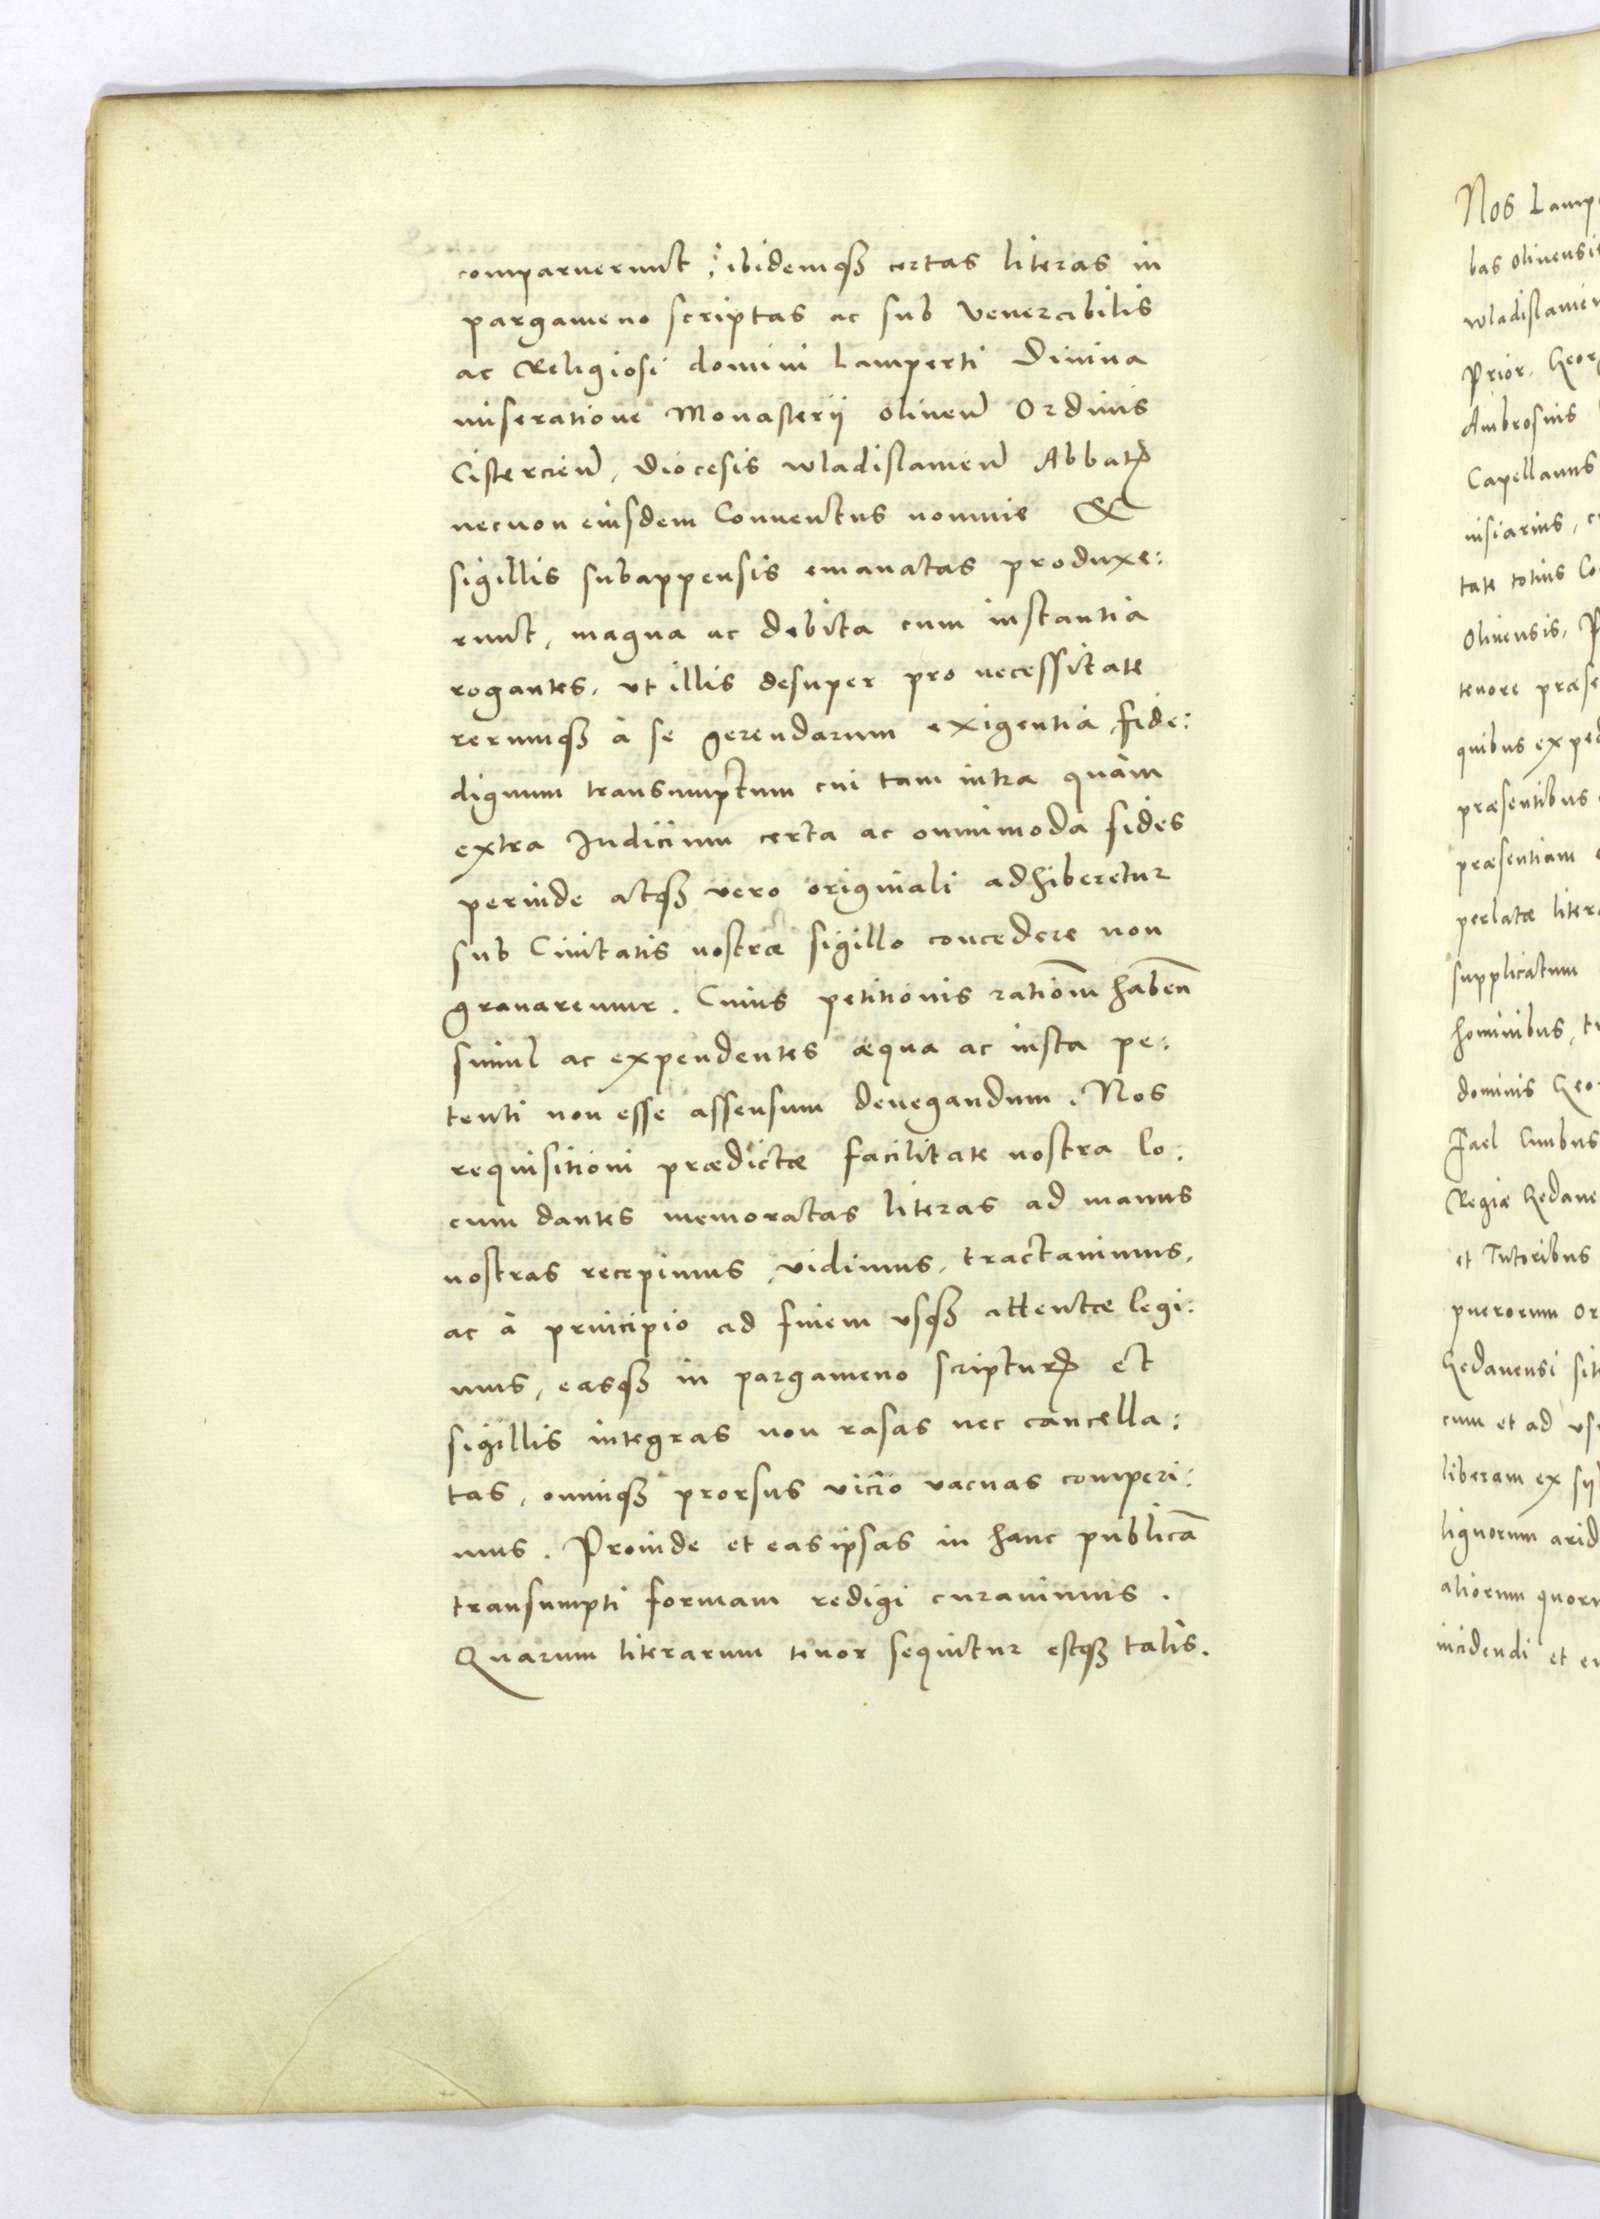 comparuerunt, ibidemqȝ certas literas in
pargameno scriptas ac sub Venerabilis
ac Religiosi domini Lamperti Diuina
miseratione Monasterii Oliuen̄ Ordinis
Cistercien̄, Diocesis wladislauien̄ Abbatꝭ
necnon eiusdem Conuentus nomine &
sigillis subappensis emanatas produxe:
runt, magna ac debita cum instantia
rogantes, vt illis desuper pro necessitate
rerumqȝ à se gerendarum exigentia fide:
dignum transumptum cui tam intra quàm
extra Iudicium certa ac omnimoda fides
perinde atqȝ vero originali adhiberetur
sub Ciuitatis nostræ sigillo concedere non
grauaremur. Cuius petitionis rationm̄ haben̄
simul ac expendentes æqua ac iusta pe:
tenti non esse assensum denegandum. Nos
requisitioni prædictæ facilitate nostra lo:
cum dantes memoratas literas ad manus
nostras recepimus, vidimus, tractauimus,
ac à principio ad finem vsqȝ attentæ legi:
mus, easqȝ in pargameno scripturꝭ et
sigillis integras non rasas nec cancella:
tas, omniqȝ prorsus vicio vacuas comperi:
mus. Proinde et eas ipsas in hanc publicā
transumpti formam redigi curauimus.
Quarum literarum tenor sequitur estqȝ talis.
Nos Lamp
bas Oliuensis
wladislauien
Prior. Geor
Ambrosius
Capellanus
nisiarius, c
tate totius Co
Oliuensis, P
tenore præse
quibus exped
præsentibus
præsentiam
perlatæ liter
supplicatum
hominibus, tr
dominis Geor
fael Cumbus
Regiæ Gedane
et Tutoribus
puerorum or
Gedanensi sit
cum et ad vsu
liberam ex syl
lignorum arid
aliorum quoru
incidendi et eu